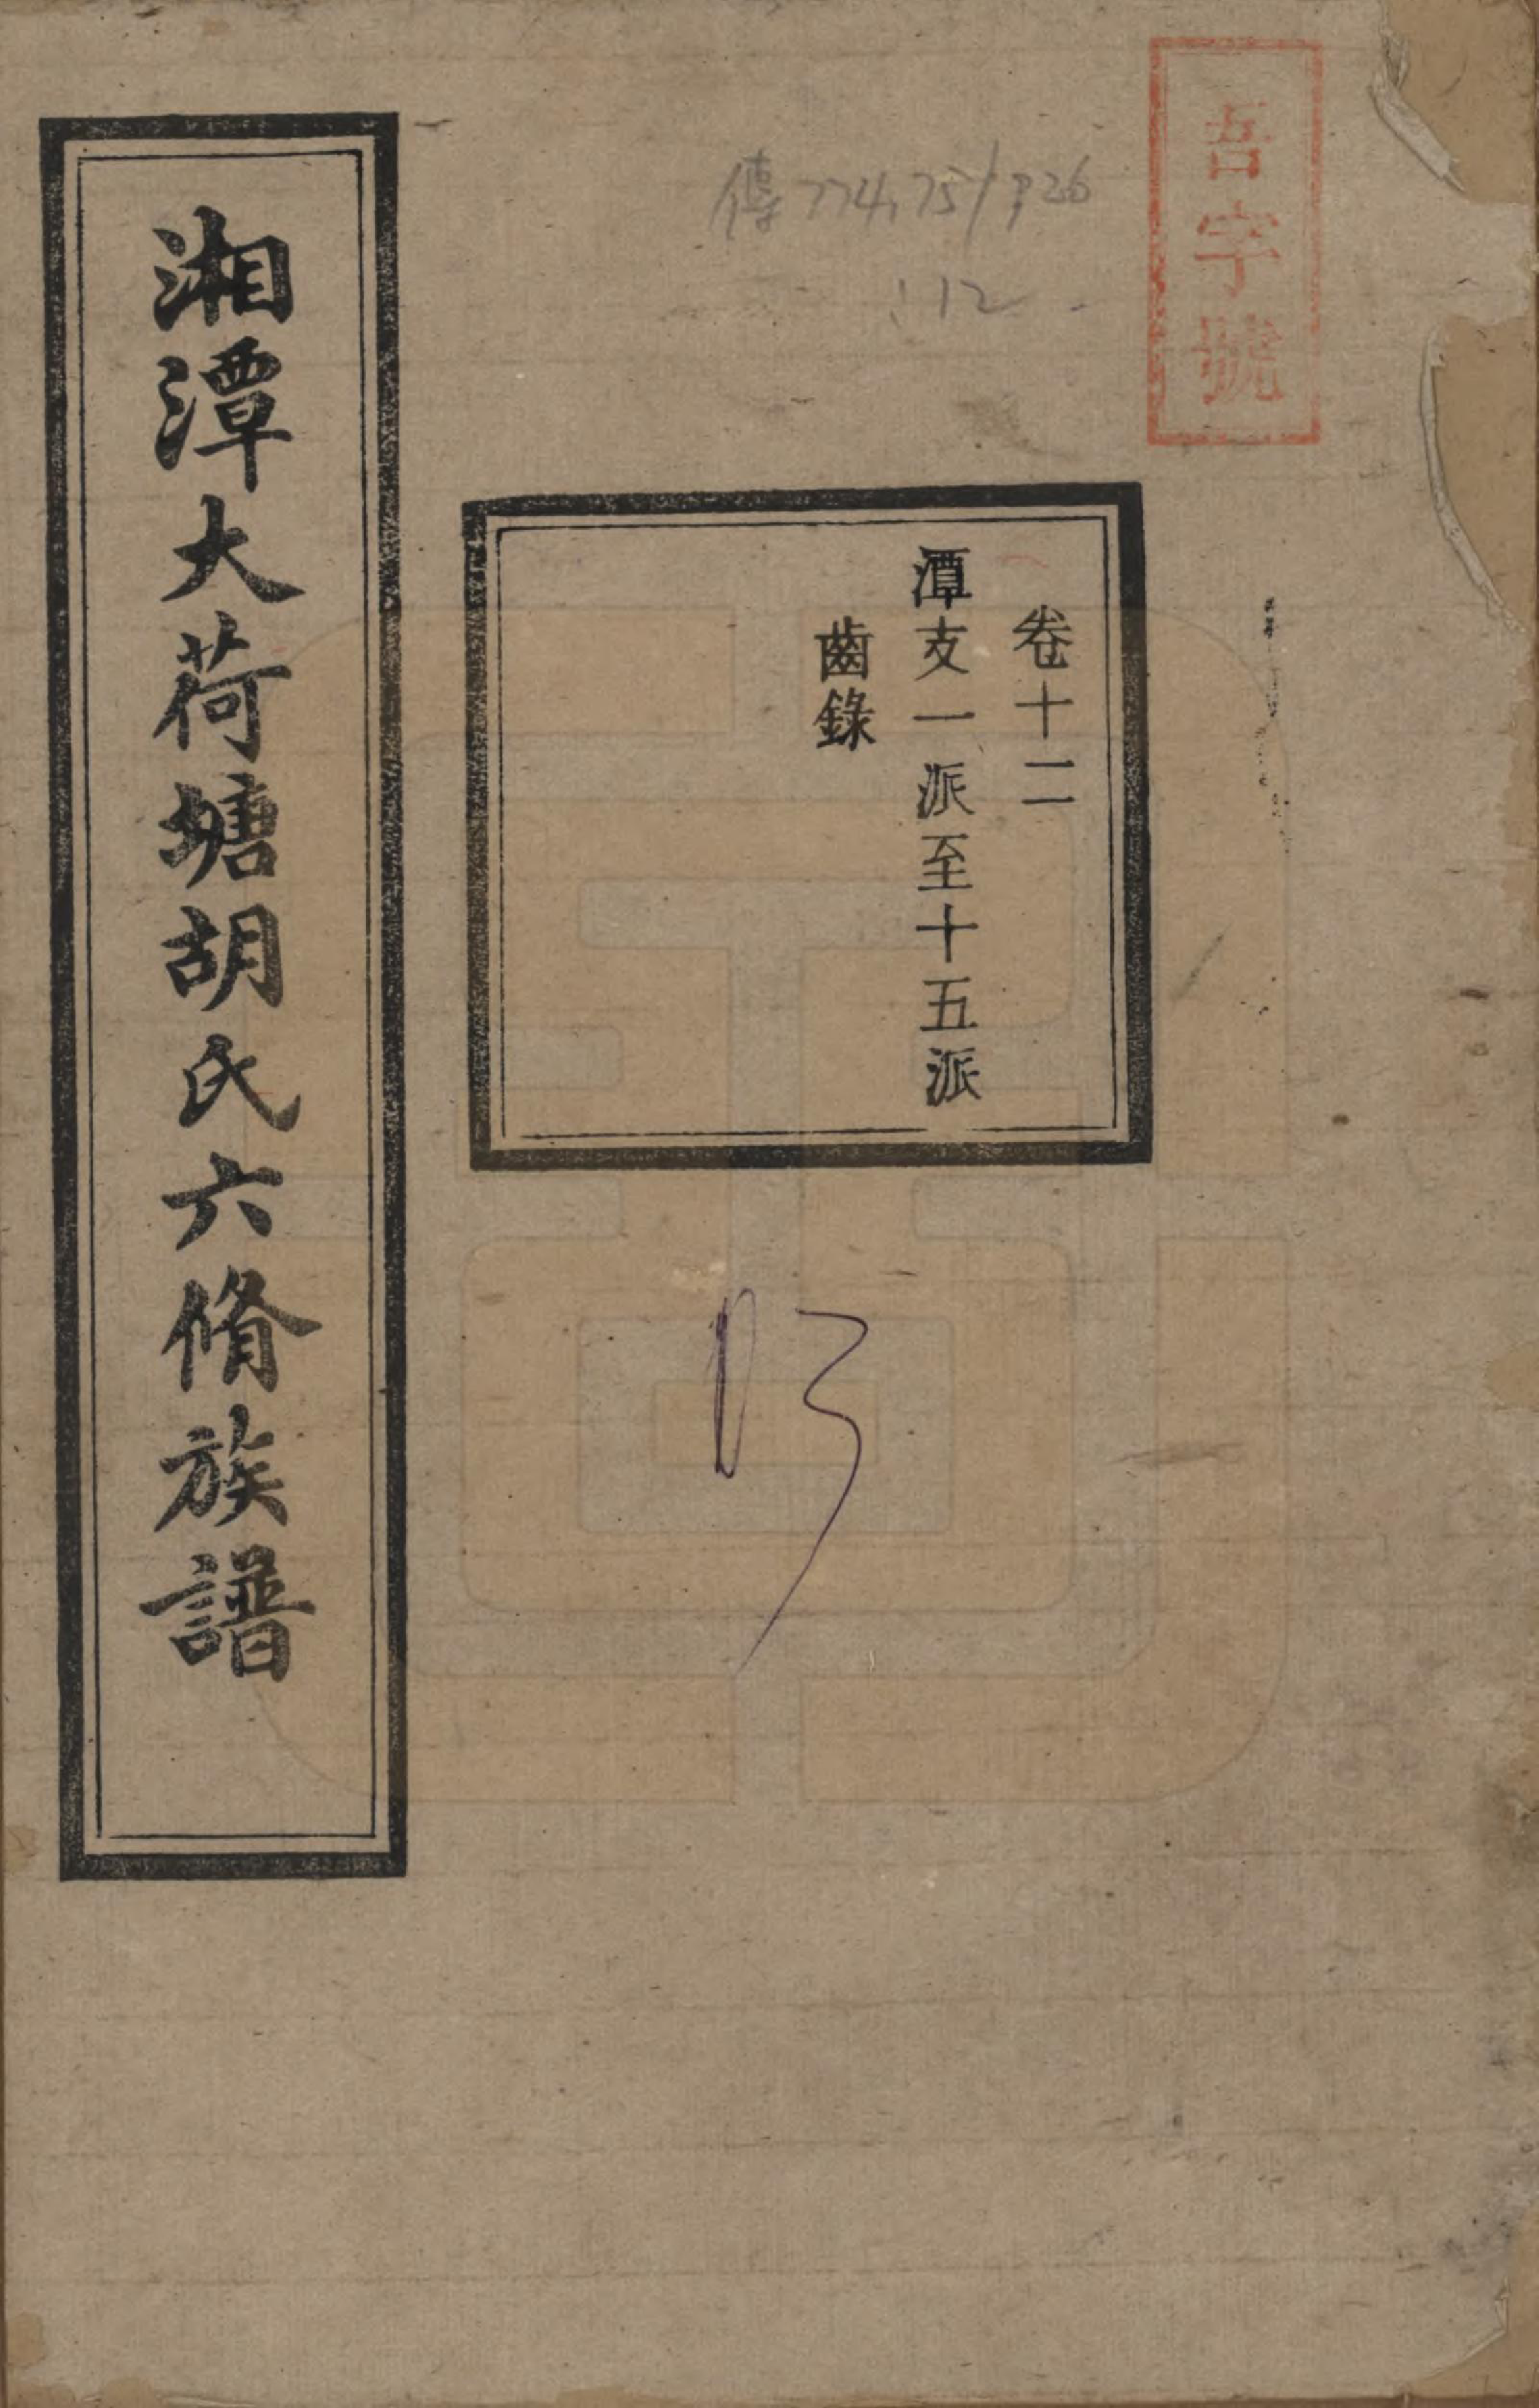 吾字號
傳774.75/926
:12
卷十二
潭支一派至十五派
齒錄
湘潭大荷塘胡氏六脩族譜
13